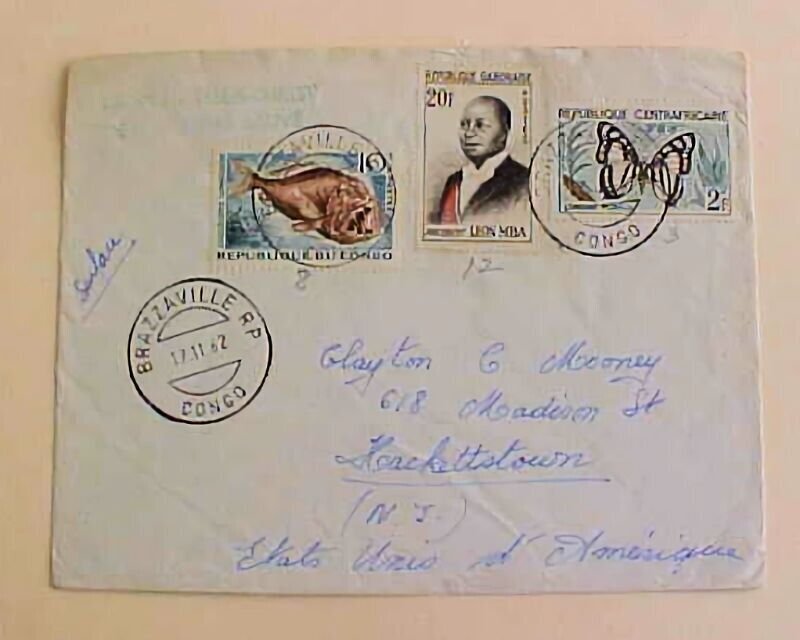 REPUBLIQUE GABONAISE
20F
POSTES
LEON MBA
REPUBLIQUE CENTRAFRICAINE
2F
REPUBLIQUE DU CONGO
BRAZZAVILLE RP
17.11.62
CONGO
CONGO
8
12
3
Clayton C Mooney
618 Madison St
Hackettstown
(N J.)
Etats Unis d'Amérique